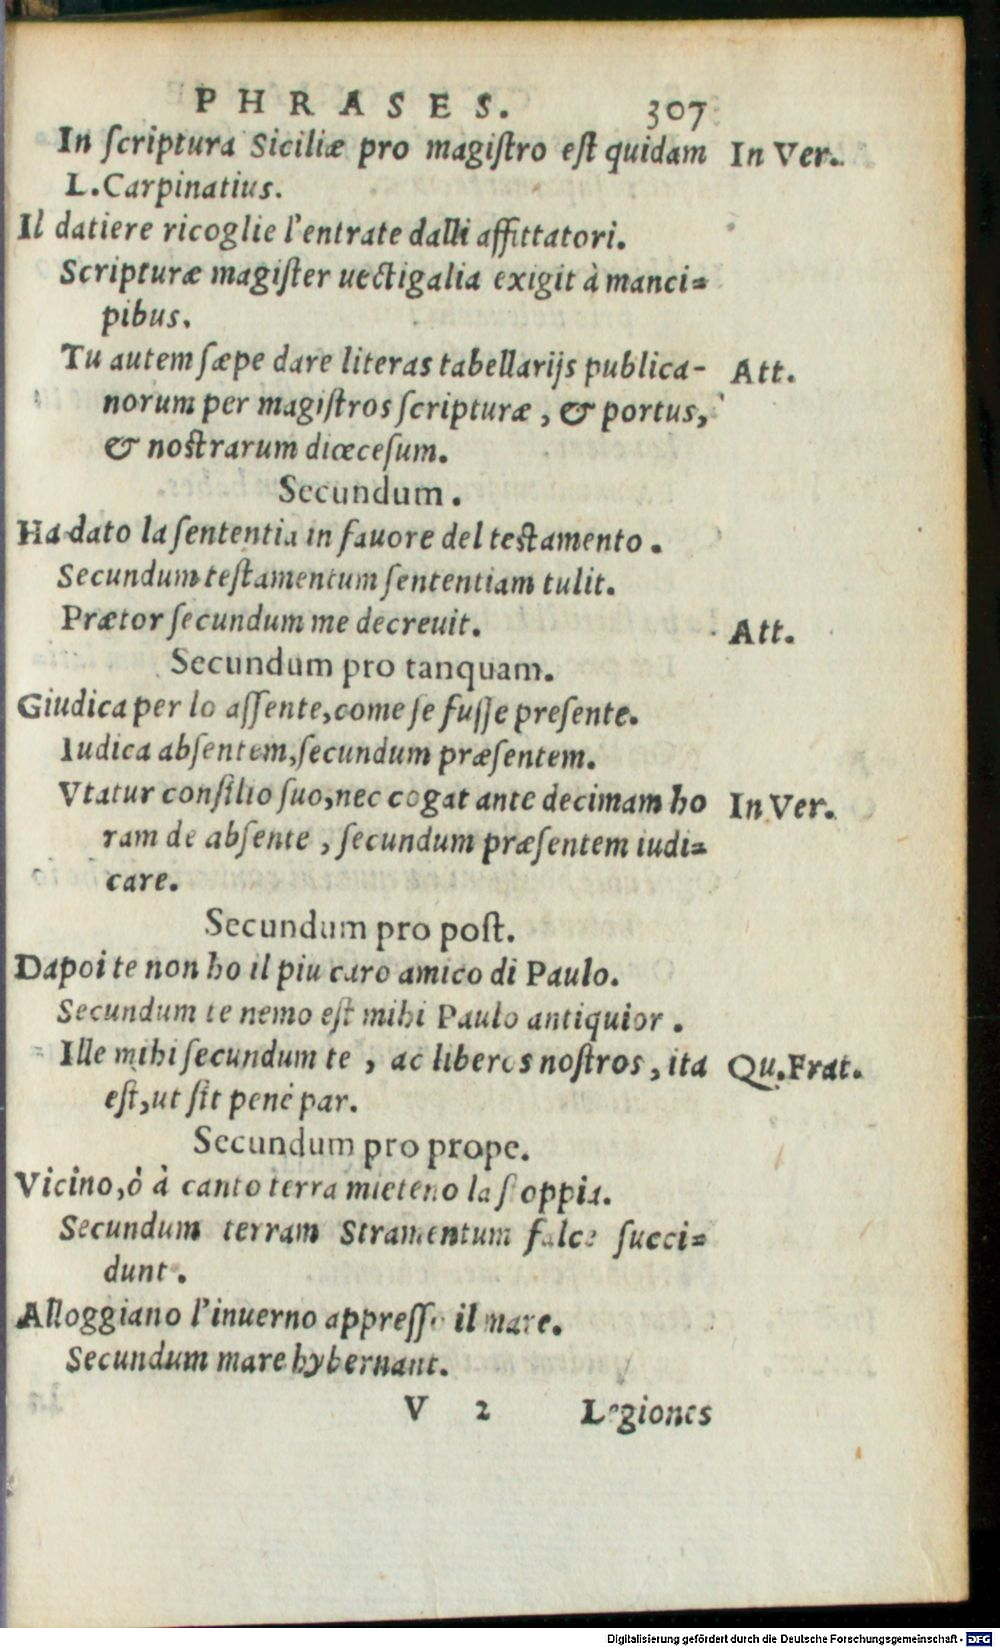 PHRASES. 307
In ſcriptura Siciliæ pro magiſtro eſt quidam In Ver.
L. Carpinatius.
Il datiere ricoglie l'entrate dalli affittatori.
Scripturæ magiſter uectigalia exigit à manci=
pibus.
Tu autem ſæpe dare literas tabellarijs publica- Att.
norum per magiſtros ſcripturæ, & portus,
& noſtrarum diœceſum.
Secundum.
Ha dato la ſententia in fauore del teſtamento.
Secundum teſtamentum ſententiam tulit.
Prætor ſecundum me decreuit. Att.
Secundum pro tanquam.
Giudica per lo aſſente, come ſe fuſſe preſente.
Iudica abſentem, ſecundum præſentem.
Vtatur conſilio ſuo, nec cogat ante decimam ho In Ver.
ram de abſente, ſecundum præſentem iudi=
care.
Secundum pro poſt.
Dapoi te non ho il piu caro amico di Paulo.
Secundum te nemo eſt mihi Paulo antiquior.
Ille mihi ſecundum te, ac liberos noſtros, ita Qu. Frat.
eſt, ut ſit penè par.
Secundum pro prope.
Vicino, ò à canto terra mieteno la ſtoppia.
Secundum terram Stramentum falce ſucci=
dunt.
Alloggiano l'inuerno appreſſo il mare.
Secundum mare hybernant.
V 2 Legiones
Digitalisierung gefördert durch die Deutsche Forschungsgemeinschaft - DFG